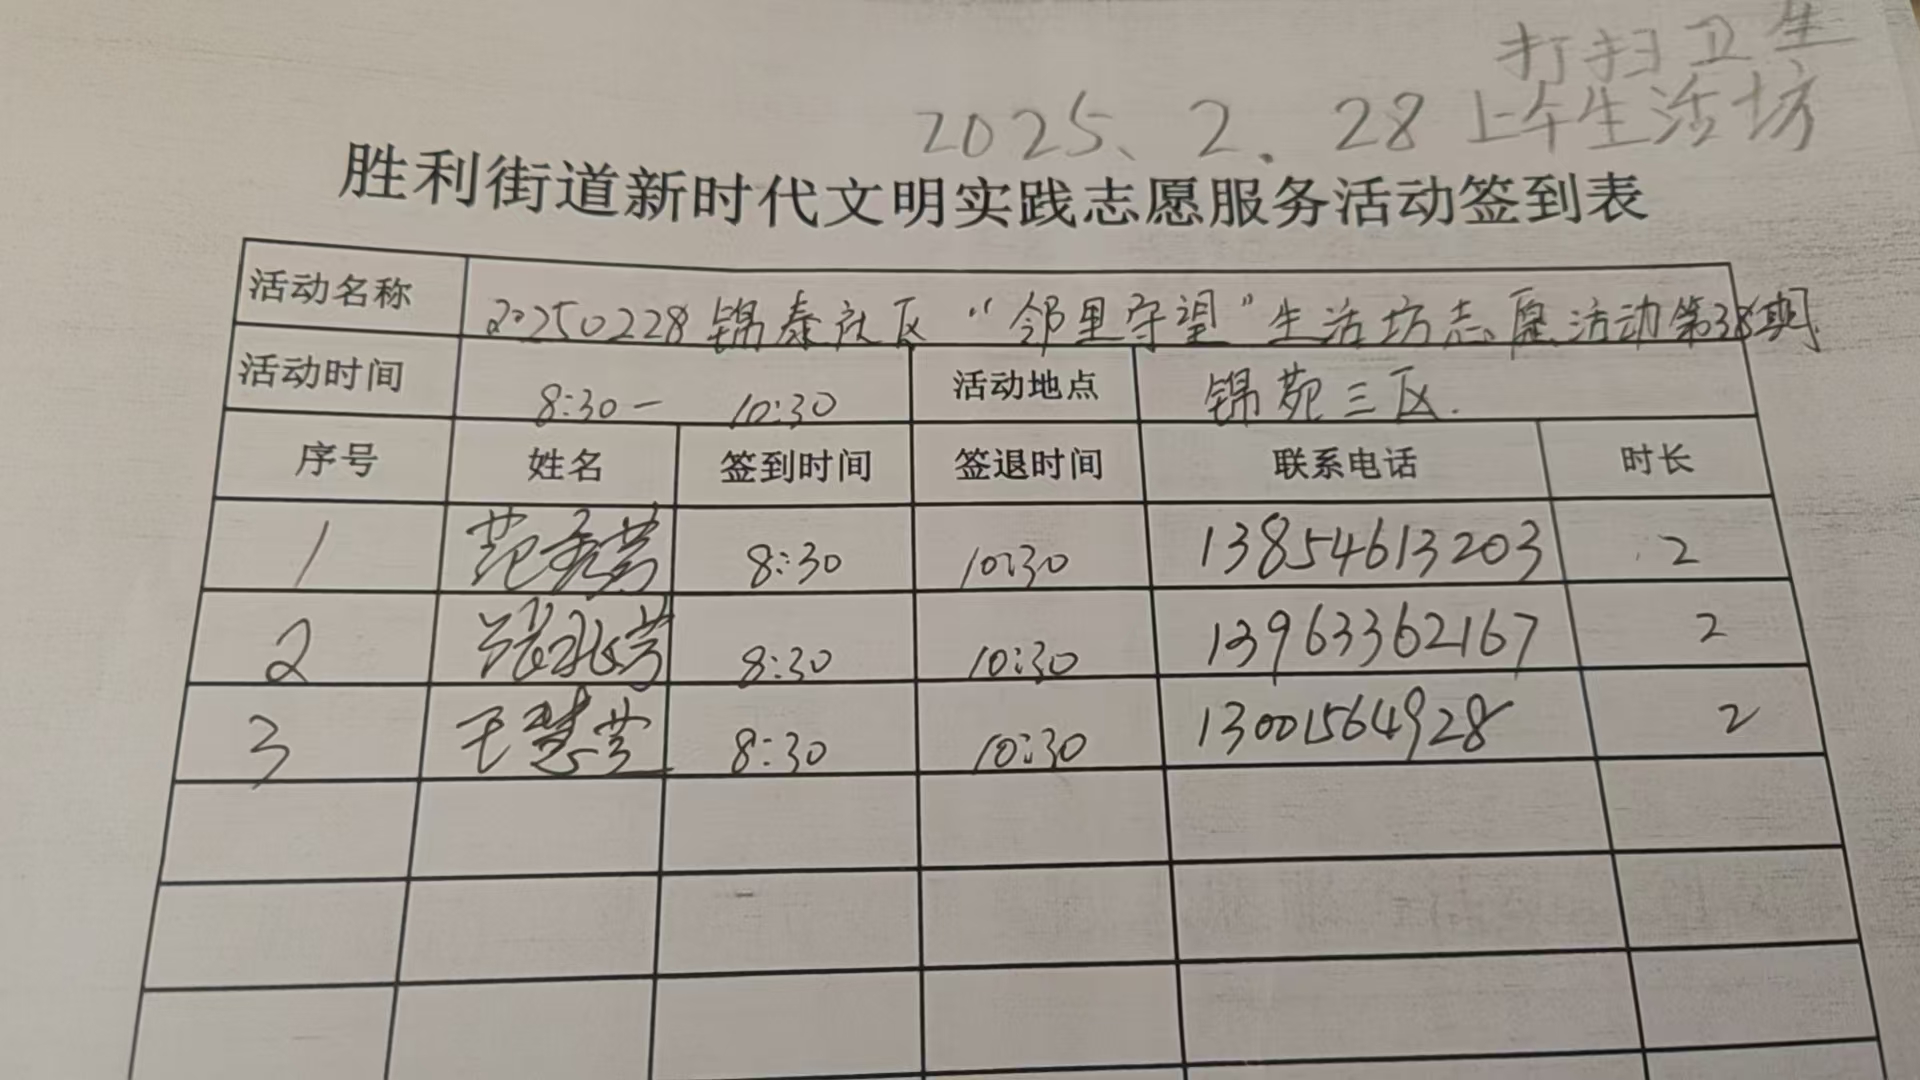 打扫卫生
2025、2.28上午生活坊
胜利街道新时代文明实践志愿服务活动签到表
活动名称 20250228锦泰社区“邻里守望”生活坊志愿活动第38期
活动时间 8:30- 10:30 活动地点 锦苑三区.
序号 姓名 签到时间 签退时间 联系电话 时长
1 范秀芳 8:30 10:30 13854613203 2
2 张兆芳 8:30 10:30 13963362167 2
3 王慧芝 8:30 10:30 13001564928 2